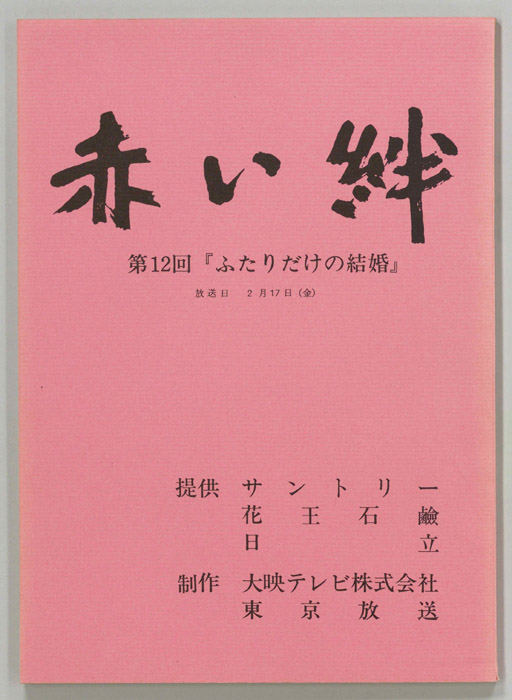 赤い絆
第12回『ふたりだけの結婚』
放送日 2月17日(金)
提供 サントリー
花王石鹸
日立
制作 大映テレビ株式会社
東京放送